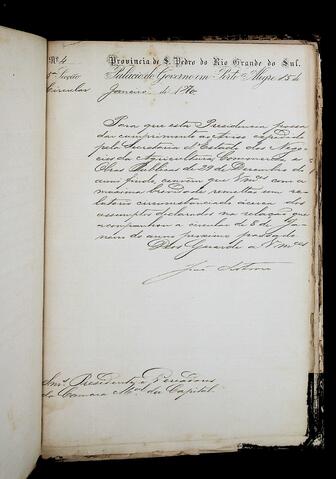 Nº 4
Provincia de S. Pedro do Rio Grande do Sul.
5ª Secção
Palacio do Governo em Porto Alegre 15 de
Circular
Janeiro de 1870
Para que esta Presidencia possa
dar cumprimento ao Aviso expedido
pela Secretaria d'Estado dos Nego-
cios da Agricultura Commercio e
Obras Publicas de 29 de Dezembro do
anno findo, convém que Vmces com a
maxima brevidade remettão um re-
latorio circumstanciado ácerca dos
assumptos declarados na relação que
acompanhou a circular de 8 de Ja-
neiro do anno proximo passado.
Deos Guarde a Vmces
João Sertorio
Snrs. Presidente e Vereadores
da Camara Mal. da Capital.